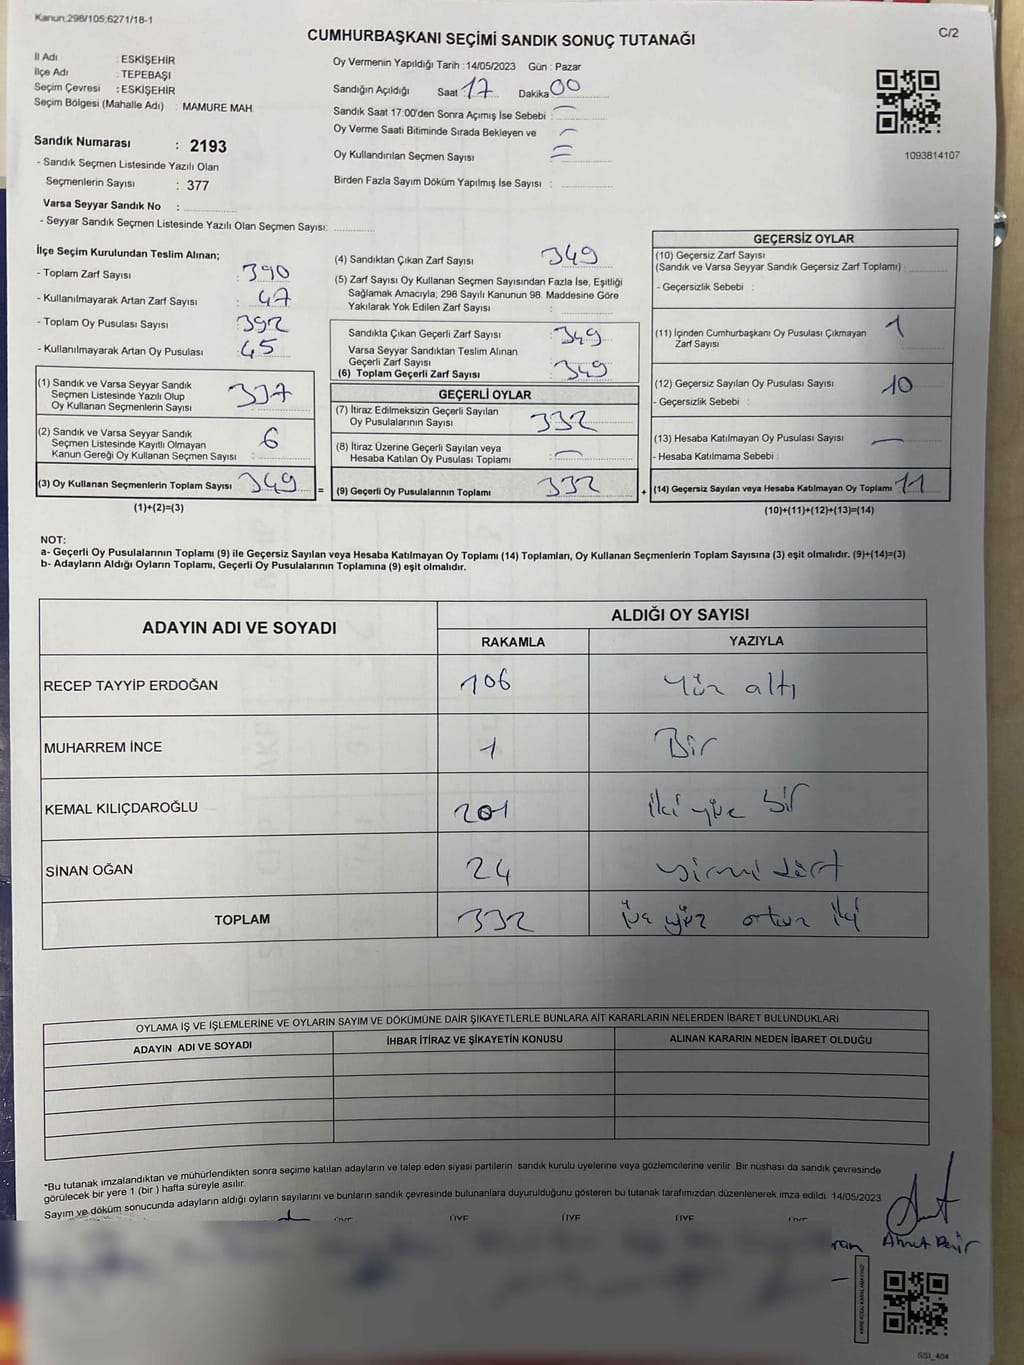 Kanun;298/105;6271/18-1
C/2
CUMHURBAŞKANI SEÇİMİ SANDIK SONUÇ TUTANAĞI
İl Adı : ESKİŞEHİR
İlçe Adı : TEPEBAŞI
Seçim Çevresi : ESKİŞEHİR
Seçim Bölgesi (Mahalle Adı) : MAMURE MAH.
Sandık Numarası : 2193
- Sandık Seçmen Listesinde Yazılı Olan
Seçmenlerin Sayısı : 377
Varsa Seyyar Sandık No :
- Seyyar Sandık Seçmen Listesinde Yazılı Olan Seçmen Sayısı:
Oy Vermenin Yapıldığı Tarih : 14/05/2023 Gün : Pazar
Sandığın Açıldığı Saat 17 Dakika 00
Sandık Saat 17:00'den Sonra Açımış İse Sebebi : —
Oy Verme Saati Bitiminde Sırada Bekleyen ve —
Oy Kullandırılan Seçmen Sayısı =
Birden Fazla Sayım Döküm Yapılmış İse Sayısı :
1093814107
İlçe Seçim Kurulundan Teslim Alınan;
- Toplam Zarf Sayısı : 390
- Kullanılmayarak Artan Zarf Sayısı : 47
- Toplam Oy Pusulası Sayısı : 392
- Kullanılmayarak Artan Oy Pusulası : 45
(1) Sandık ve Varsa Seyyar Sandık
Seçmen Listesinde Yazılı Olup
Oy Kullanan Seçmenlerin Sayısı : 337
(2) Sandık ve Varsa Seyyar Sandık
Seçmen Listesinde Kayıtlı Olmayan
Kanun Gereği Oy Kullanan Seçmen Sayısı : 6
(3) Oy Kullanan Seçmenlerin Toplam Sayısı 349 =
(1)+(2)=(3)
(4) Sandıktan Çıkan Zarf Sayısı 349
(5) Zarf Sayısı Oy Kullanan Seçmen Sayısından Fazla İse, Eşitliği
Sağlamak Amacıyla; 298 Sayılı Kanunun 98. Maddesine Göre
Yakılarak Yok Edilen Zarf Sayısı :
Sandıkta Çıkan Geçerli Zarf Sayısı : 349
Varsa Seyyar Sandıktan Teslim Alınan
Geçerli Zarf Sayısı
(6) Toplam Geçerli Zarf Sayısı : 349
GEÇERLİ OYLAR
(7) İtiraz Edilmeksizin Geçerli Sayılan
Oy Pusulalarının Sayısı : 332
(8) İtiraz Üzerine Geçerli Sayılan veya
Hesaba Katılan Oy Pusulası Toplamı : —
(9) Geçerli Oy Pusulalarının Toplamı 332 +
GEÇERSİZ OYLAR
(10) Geçersiz Zarf Sayısı
(Sandık ve Varsa Seyyar Sandık Geçersiz Zarf Toplamı) :
- Geçersizlik Sebebi :
(11) İçinden Cumhurbaşkanı Oy Pusulası Çıkmayan 1
Zarf Sayısı :
(12) Geçersiz Sayılan Oy Pusulası Sayısı : 10
- Geçersizlik Sebebi :
(13) Hesaba Katılmayan Oy Pusulası Sayısı : —
- Hesaba Katılmama Sebebi :
(14) Geçersiz Sayılan veya Hesaba Katılmayan Oy Toplamı 11
(10)+(11)+(12)+(13)=(14)
NOT:
a- Geçerli Oy Pusulalarının Toplamı (9) ile Geçersiz Sayılan veya Hesaba Katılmayan Oy Toplamı (14) Toplamları, Oy Kullanan Seçmenlerin Toplam Sayısına (3) eşit olmalıdır. (9)+(14)=(3)
b- Adayların Aldığı Oyların Toplamı, Geçerli Oy Pusulalarının Toplamına (9) eşit olmalıdır.
ADAYIN ADI VE SOYADI
ALDIĞI OY SAYISI
RAKAMLA YAZIYLA
RECEP TAYYİP ERDOĞAN 106 Yüz altı
MUHARREM İNCE 1 Bir
KEMAL KILIÇDAROĞLU 201 iki yüz bir
SİNAN OĞAN 24 yirmi dört
TOPLAM 332 üç yüz otuz iki
OYLAMA İŞ VE İŞLEMLERİNE VE OYLARIN SAYIM VE DÖKÜMÜNE DAİR ŞİKAYETLERLE BUNLARA AİT KARARLARIN NELERDEN İBARET BULUNDUKLARI
ADAYIN ADI VE SOYADI İHBAR İTİRAZ VE ŞİKAYETİN KONUSU ALINAN KARARIN NEDEN İBARET OLDUĞU
*Bu tutanak imzalandıktan ve mühürlendikten sonra seçime katılan adayların ve talep eden siyasi partilerin sandık kurulu üyelerine veya gözlemcilerine verilir. Bir nüshası da sandık çevresinde
görülecek bir yere 1 (bir) hafta süreyle asılır.
Sayım ve döküm sonucunda adayların aldığı oyların sayılarını ve bunların sandık çevresinde bulunanlara duyurulduğunu gösteren bu tutanak tarafımızdan düzenlenerek imza edildi. 14/05/2023
ÜYE ÜYE ÜYE ÜYE ÜYE